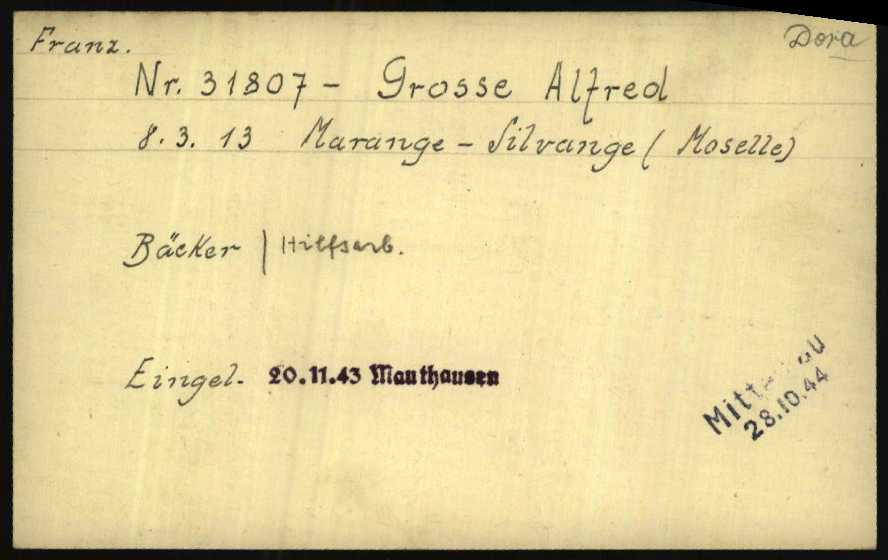 Franz.
Dora
Nr. 31807 - Grosse Alfred
8. 3. 13 Marange - Silvange ( Moselle)
Bäcker | Hilfsarb.
Eingel. 20.11.43 Mauthausen
28.10.44